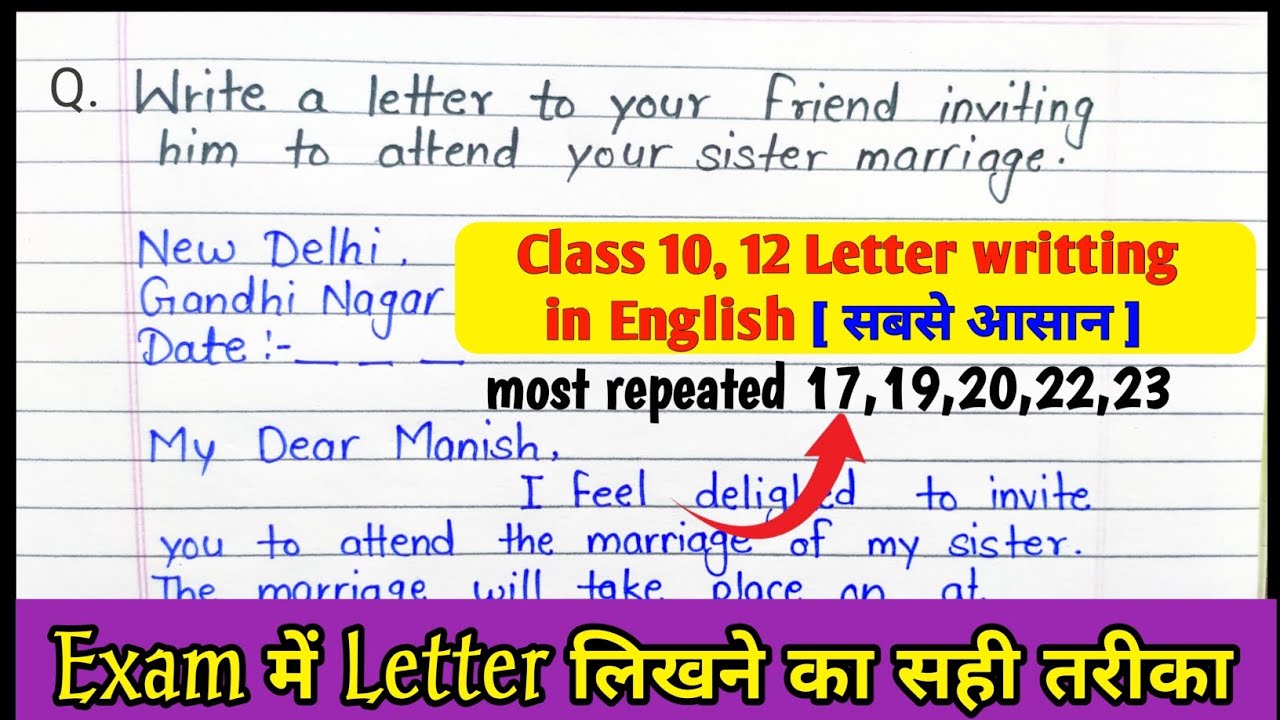 Q. Write a letter to your friend inviting
him to attend your sister marriage.
New Delhi,
Gandhi Nagar
Date :- _ _ _
Class 10, 12 Letter writting
in English [ सबसे आसान ]
most repeated 17,19,20,22,23
My Dear Manish,
I feel delighted to invite
you to attend the marriage of my sister.
The marriage will take place on at
Exam में Letter लिखने का सही तरीका